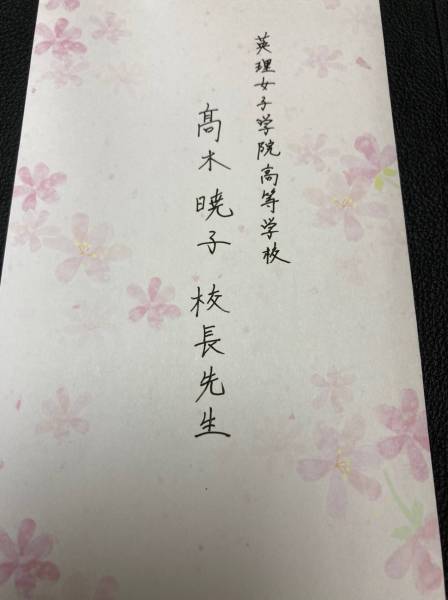 英理女子学院高等学校
髙木暁子 校長先生